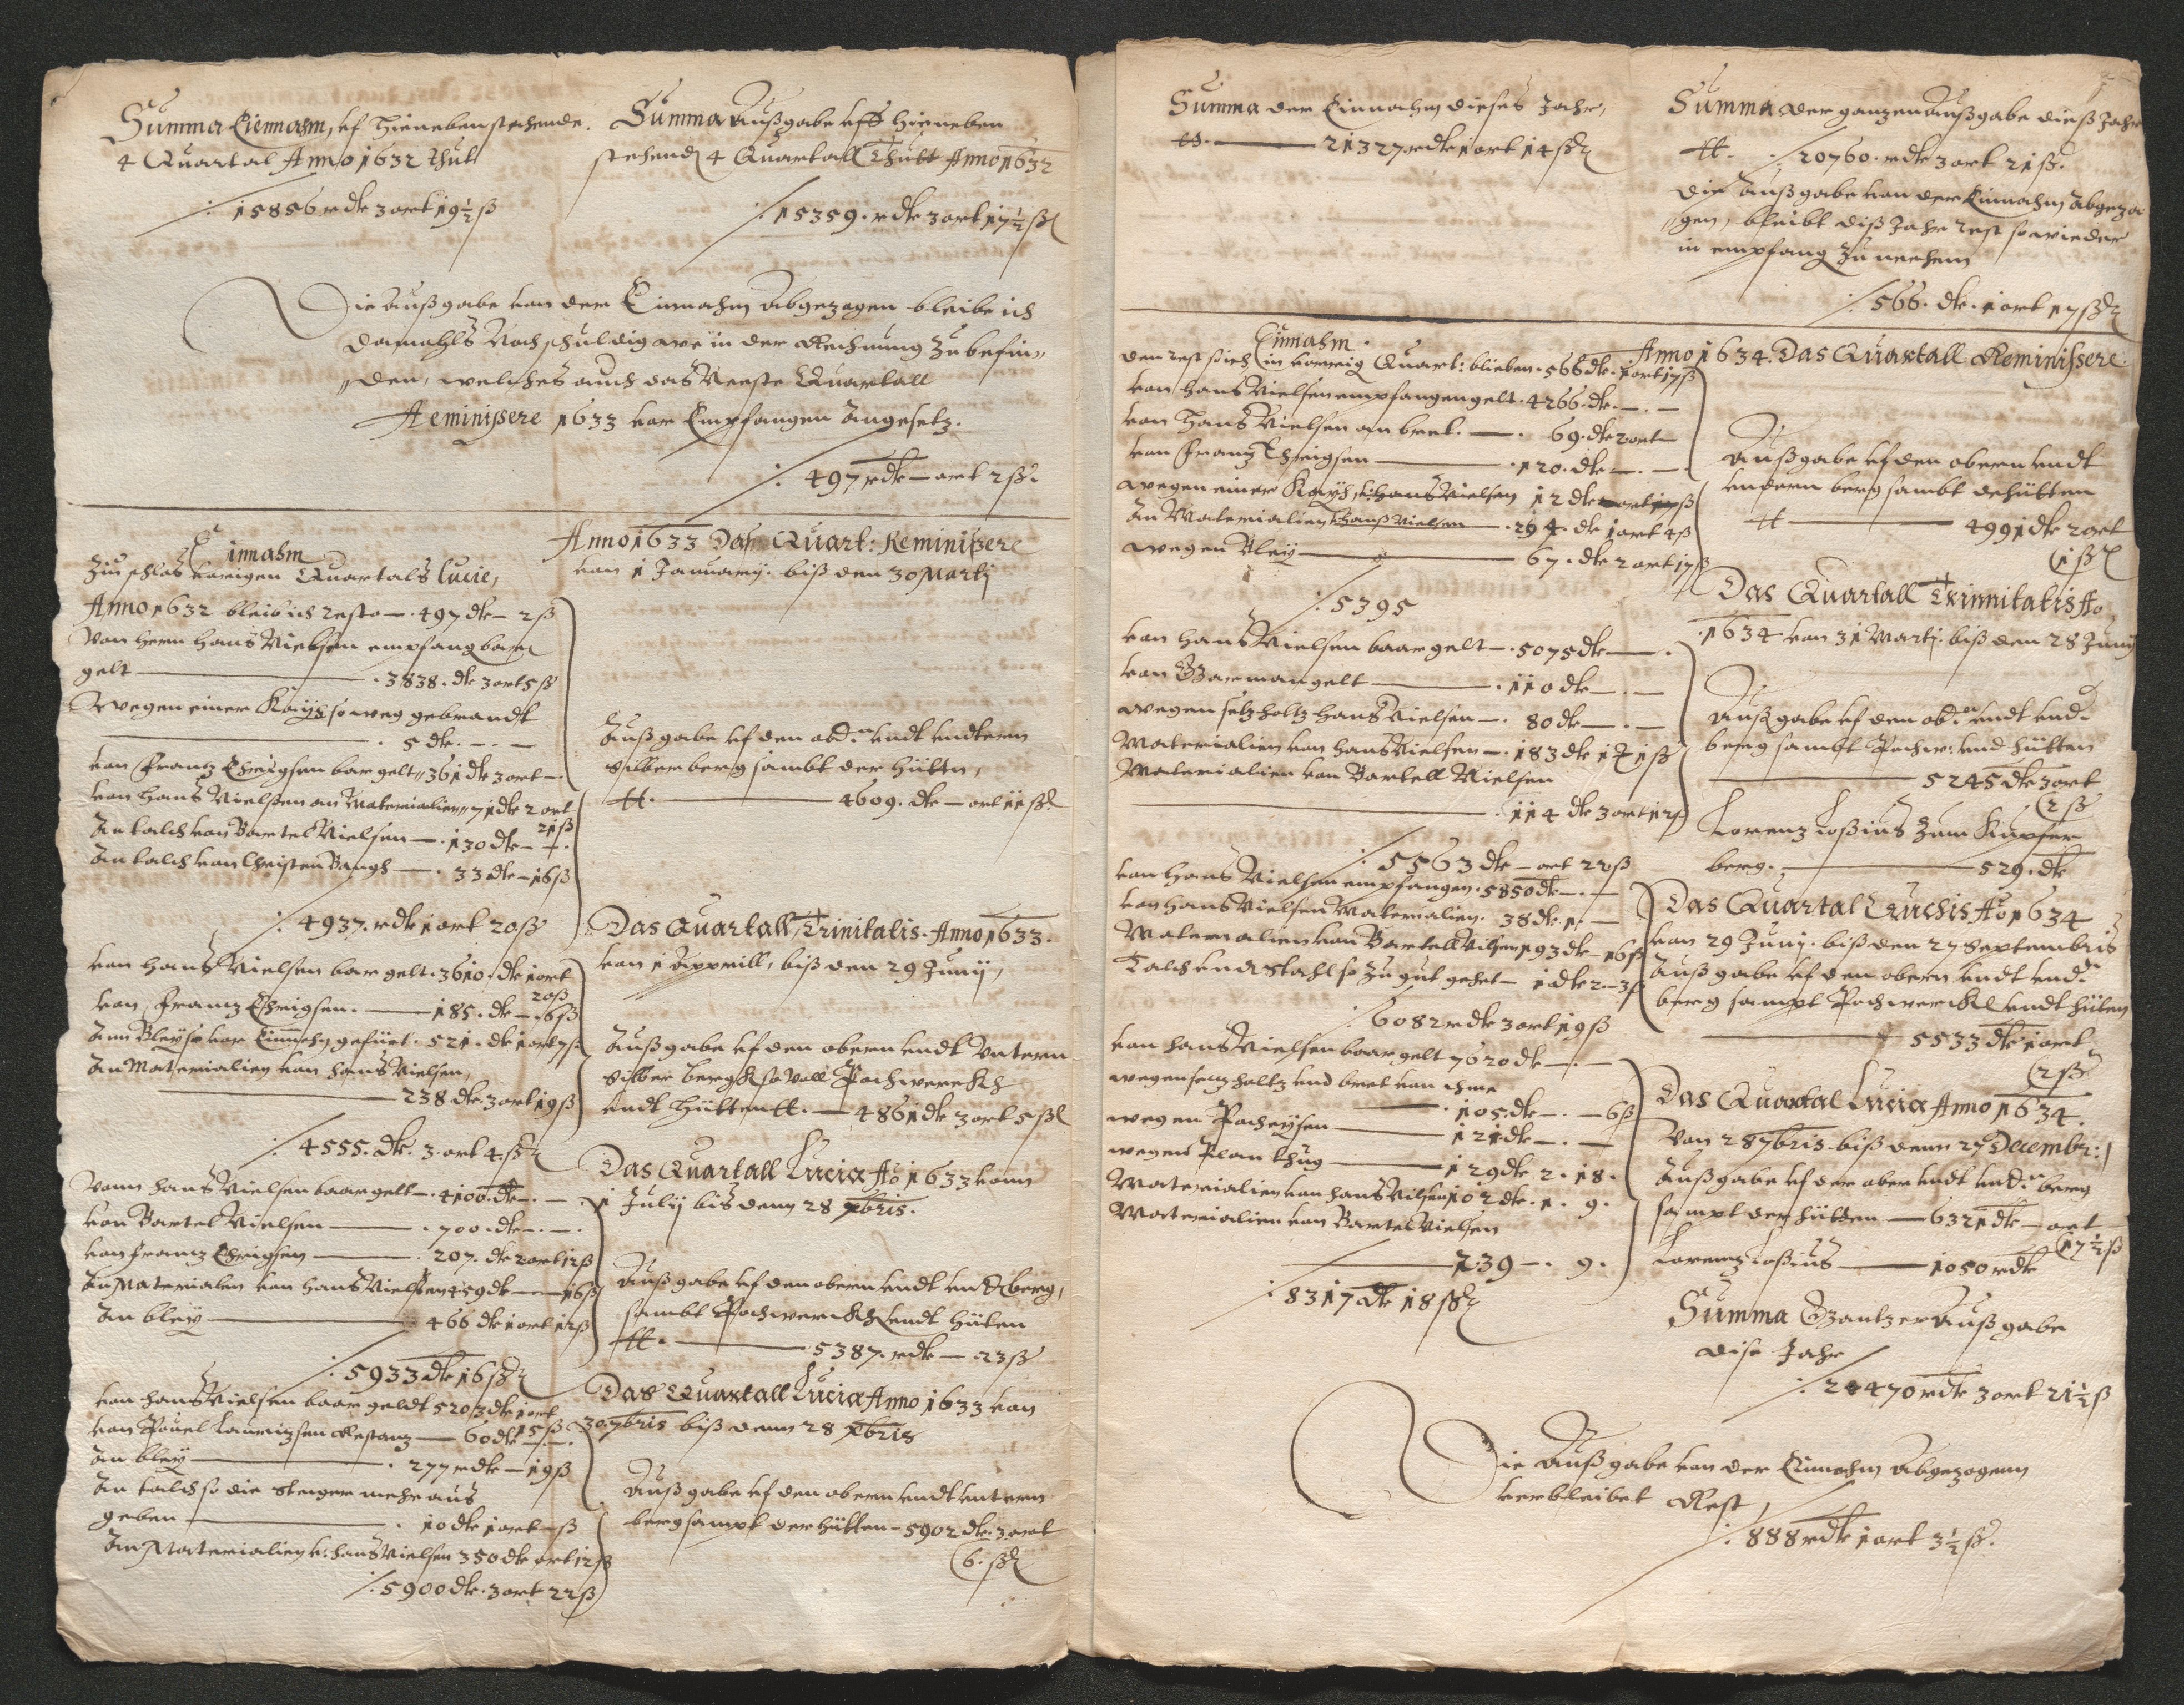 Summa Einnahm, uf hieneben stehende
4 Quartal Anno 1632 thut
/: 15856 rdlr 3 ort 19½ ß
Summa Außgabe uff hieneben
stehende 4 Quartall Thutt Anno 1632
/: 15359. rdlr 3 ort 17½ ß
Die Außgabe von der Einnahm Abgezogen bleibe ich
damahls Noch schuldig wie in der Rechnung zu befin„
„den, welches auch das Neeste Quartall
Reminissere 1633 vor Empfangen Angesetz.
/: 497 rdlr — ort 2 ß.
Einnahm
Zum schlos vorigen Quartals Lucie,
Anno 1632 bleib ich resto — 497 dlr — 2 ß
Von Herrn Hans Nielsen empfang baar
gelt — 3838. dlr 3 ort 5 ß
Wegen einer so weg gebrandt
— 5 dlr. —. —
von Frantz bar gelt „ 361 dlr 3 ort —
von Hans Nielsen an Materialien „ 71 dlr 2 ort
21 ß
An talch von Bartel Nielsen — 130 dlr —
An talch von Christen — 33 dlr — 16 ß
/: 4937. rdlr 1 ort 20 ß
von Hans Nielsen bar gelt. 3610. dlr 1 ort
20 ß
von Frantz — 185. dlr — 16 ß
Ann Bley so vor Einnehm gefürt. 521. dlr 1 ort 7 ß
An Materialien von Hans Nielsen,
— 238 dlr. 3 ort 19 ß
/: 4555. dlr. 3. ort 4. ß
Vonn Hans Nielsen baar gelt — 4100. dlr —. —
von Bartel Nielsen — 700. dlr —. —
von Frantz — 207. dlr 2 ort 12 ß
An Materialen von Hans Nielsen 459 dlr — 16 ß
An bley — 466 dlr 1 ort 12 ß
/: 5933 dlr 16 ß
von Hans Nielsen baar geldt 5203 dlr 1 ort
15 ß
von Pouel Lauritzsen Restanz — 60 dlr —
An bley — 277 rdlr — 19 ß
An talch so die steiger mehr aus
geben — 10 dlr 1 ort — ß
An Materialien v: Hans Nielsen 350 dlr ort 12 ß
/: 5900 dlr. 3 ort 22 ß
Anno 1633 Das Quart: Reminissere
von 1 January. biß den 30 Martj
Außgabe uf den obern undt undtern
Silberberg sambt der Hütten,
tt. — 4609. dlr — ort 11 ß
Das Quartall Trinitatis. Anno 1633.
von 1 Apprill, biß den 29 Junij,
Außgabe uf den obern undt Untern
Silber Bergk so Voll Pochwerckh
undt Hütten tt. — 4861 dlr 3 ort 5 ß
Das Quartall Luciæ Ao 1633 vonn
1 Julij bis denn 28 bris.
Außgabe uf den obern undt und. berg,
sambt Pochwerckh undt Hüten
tt. — 5387. rdlr — 23 ß
Das Quartall Luciæ Anno 1633 von
30. 7bris biß denn 28 Xbris
Außgabe uf den obern undt untern
berg sampt der Hütten — 5902 dlr. 3 ort
6. ß
Summa der Einnahm dieses Jahr,
tt. — 21327. rdlr 1 ort 14 ß
Summa der ganzen Außgabe dieß Jahr
tt. /: 20760. rdlr 3 ort 21 ß.
Die Außgabe von der Einnahm Abgezo
„gen, bleibt diß Jahr rest so wieder
in empfang zu nehem
/: 566. dlr. 1 ort 17 ß
Einnahm.
den rest so ich in vorrig Quart: blieben. 566 dlr. 1 ort 17 ß
von Hans Nielsen empfangen gelt. 4266. dlr. —. —
von Hans Nielsen an bret. — 69. dlr 2 ort —
von Frantz — 120. dlr —. —
wegen einer v: Hans Nielsen 12 dlr
An Materialien v: Hans Nielsen — 294. dlr 1 ort 4 ß
wegen Bley — 67. dlr 2 ort 17 ß
/: 5395
von Hans Nielsen baar gelt — 5075 dlr —.
von gelt — 110 dlr —. —
wegen setz holtz Hans Nielsen — 80 dlr —. —
Materialien von Hans Nielsen — 183 dlr 1 ß
Materialien von Bartell Nielsen
— 114 dlr 3 ort 12 ß
/: 5563 dlr — ort 20 ß
von Hans Nielsen empfangen. 5850 dlr —. —
von Hans Nielsen Materialien. 38 dlr 1. —
Materialien von Bartell Nilsen 193 dlr — 16 ß
Talch und stahl so zu gut gehet — 1 dlr 2 — 3 ß
/: 6082 rdlr 3 ort 19 ß
von Hans Nielsen baar gelt 7620 dlr —. —
wegen setz holtz und bret von ihme
— 105. dlr —. — 6 ß
wegen Pocheysen — 121 dlr —. —
wegen — 129 dlr 2. 18.
Materialien von Hans Nilsen 102 dlr. 1. 9.
Materialien von Bartel Nielsen
— 239 —. 9.
/: 8317 dlr 18 ß
Anno 1634. Das Quartall Reminissere.
Außgabe uf den obern undt
undern berg sambt de hütten
tt — 4991 dlr 2 ort
1 ß
Das Quartall Trinnitatis Ao
1634 von 31 Martj. biß den 28 Junij
Außgabe uf den ob: undt und.
berg sambt Pochw: und hütten
— 5245 dlr 3 ort
2 ß
Lorenz Loßius zum Kupfer
berg. — 529. dlr
Das Quartal Crucis Ao 1634
von 29 Junij. biß den 27 Septembris
Außgabe uf den obern undt und.
berg sampt Pochwerckh undt Hüten
— 5533 dlr 1 ort
2 ß
Das Quartal Luciæ Anno 1634.
Von 28 7bris. biß denn 27 Decembr:
Außgabe uf der ober undt und. berg
sampt der Hütten — 6321 dlr — ort
17½ ß
Lorentz Loßius — 1050 rdlr
Summa Gantzer Außgabe
dise Jahr
/: 24470 rdlr 3 ort 21½ ß
Die Außgabe von der Einnahm Abgezogenn
verbleibet Rest,
/: 888 rdlr 1 ort 3½ ß.